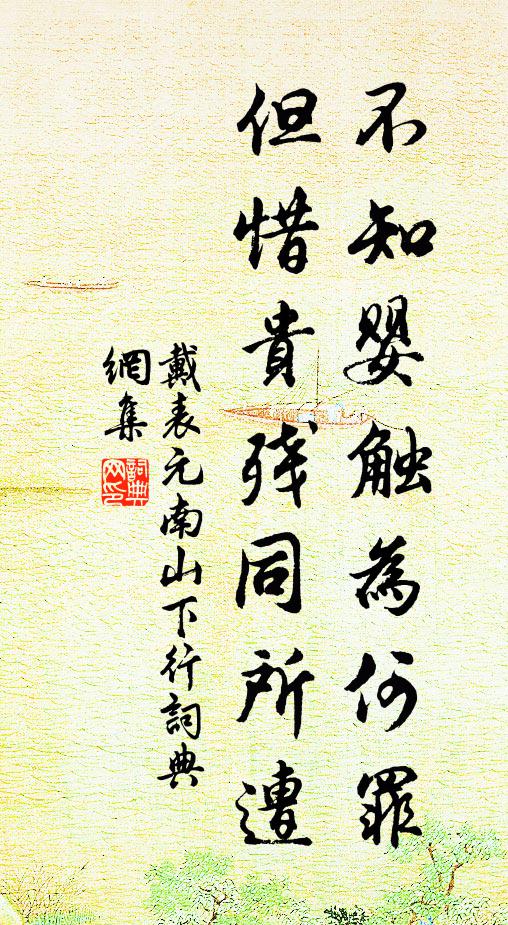 不知婴触為何罪
但惜貴残同所遭
戴表元南山下行詞典
網集
詞典
网印